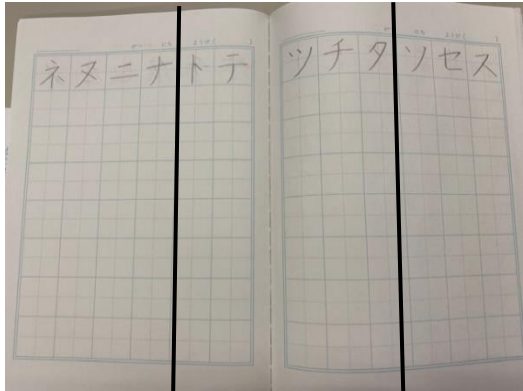 ス
セ
ソ
タ
チ
ツ
テ
ト
ナ
ニ
ヌ
ネ